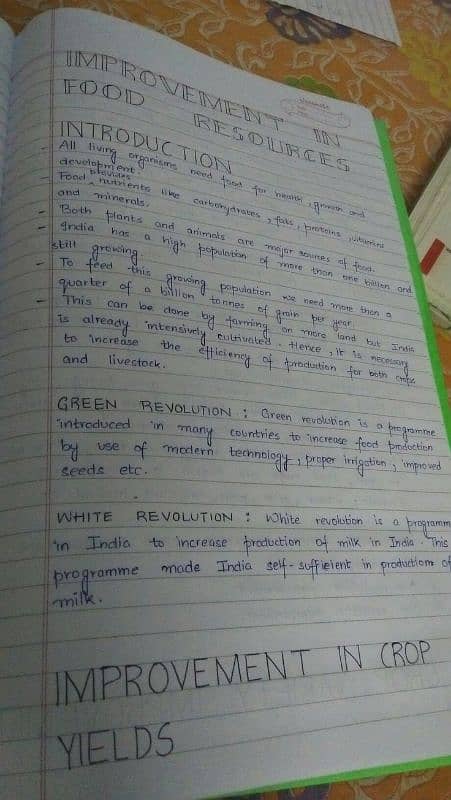 IMPROVEMENT IN
FOOD RESOURCES
INTRODUCTION
- All living organisms need food for health, growth and
development.
- Food provides nutrients like carbohydrates, fats, proteins, vitamins
and minerals.
- Both plants and animals are major sources of food.
- India has a high population of more than one billion and
still growing.
- To feed this growing population we need more than a
quarter of a billion tonnes of grain per year.
- This can be done by farming on more land but India
is already intensively cultivated. Hence, it is necessary
to increase the efficiency of production for both crops
and livestock.
GREEN REVOLUTION : Green revolution is a programme
introduced in many countries to increase food production
by use of modern technology, proper irrigation, improved
seeds etc.
WHITE REVOLUTION : White revolution is a programm
in India to increase production of milk in India. This
programme made India self-sufficient in production of
milk.
IMPROVEMENT IN CROP
YIELDS